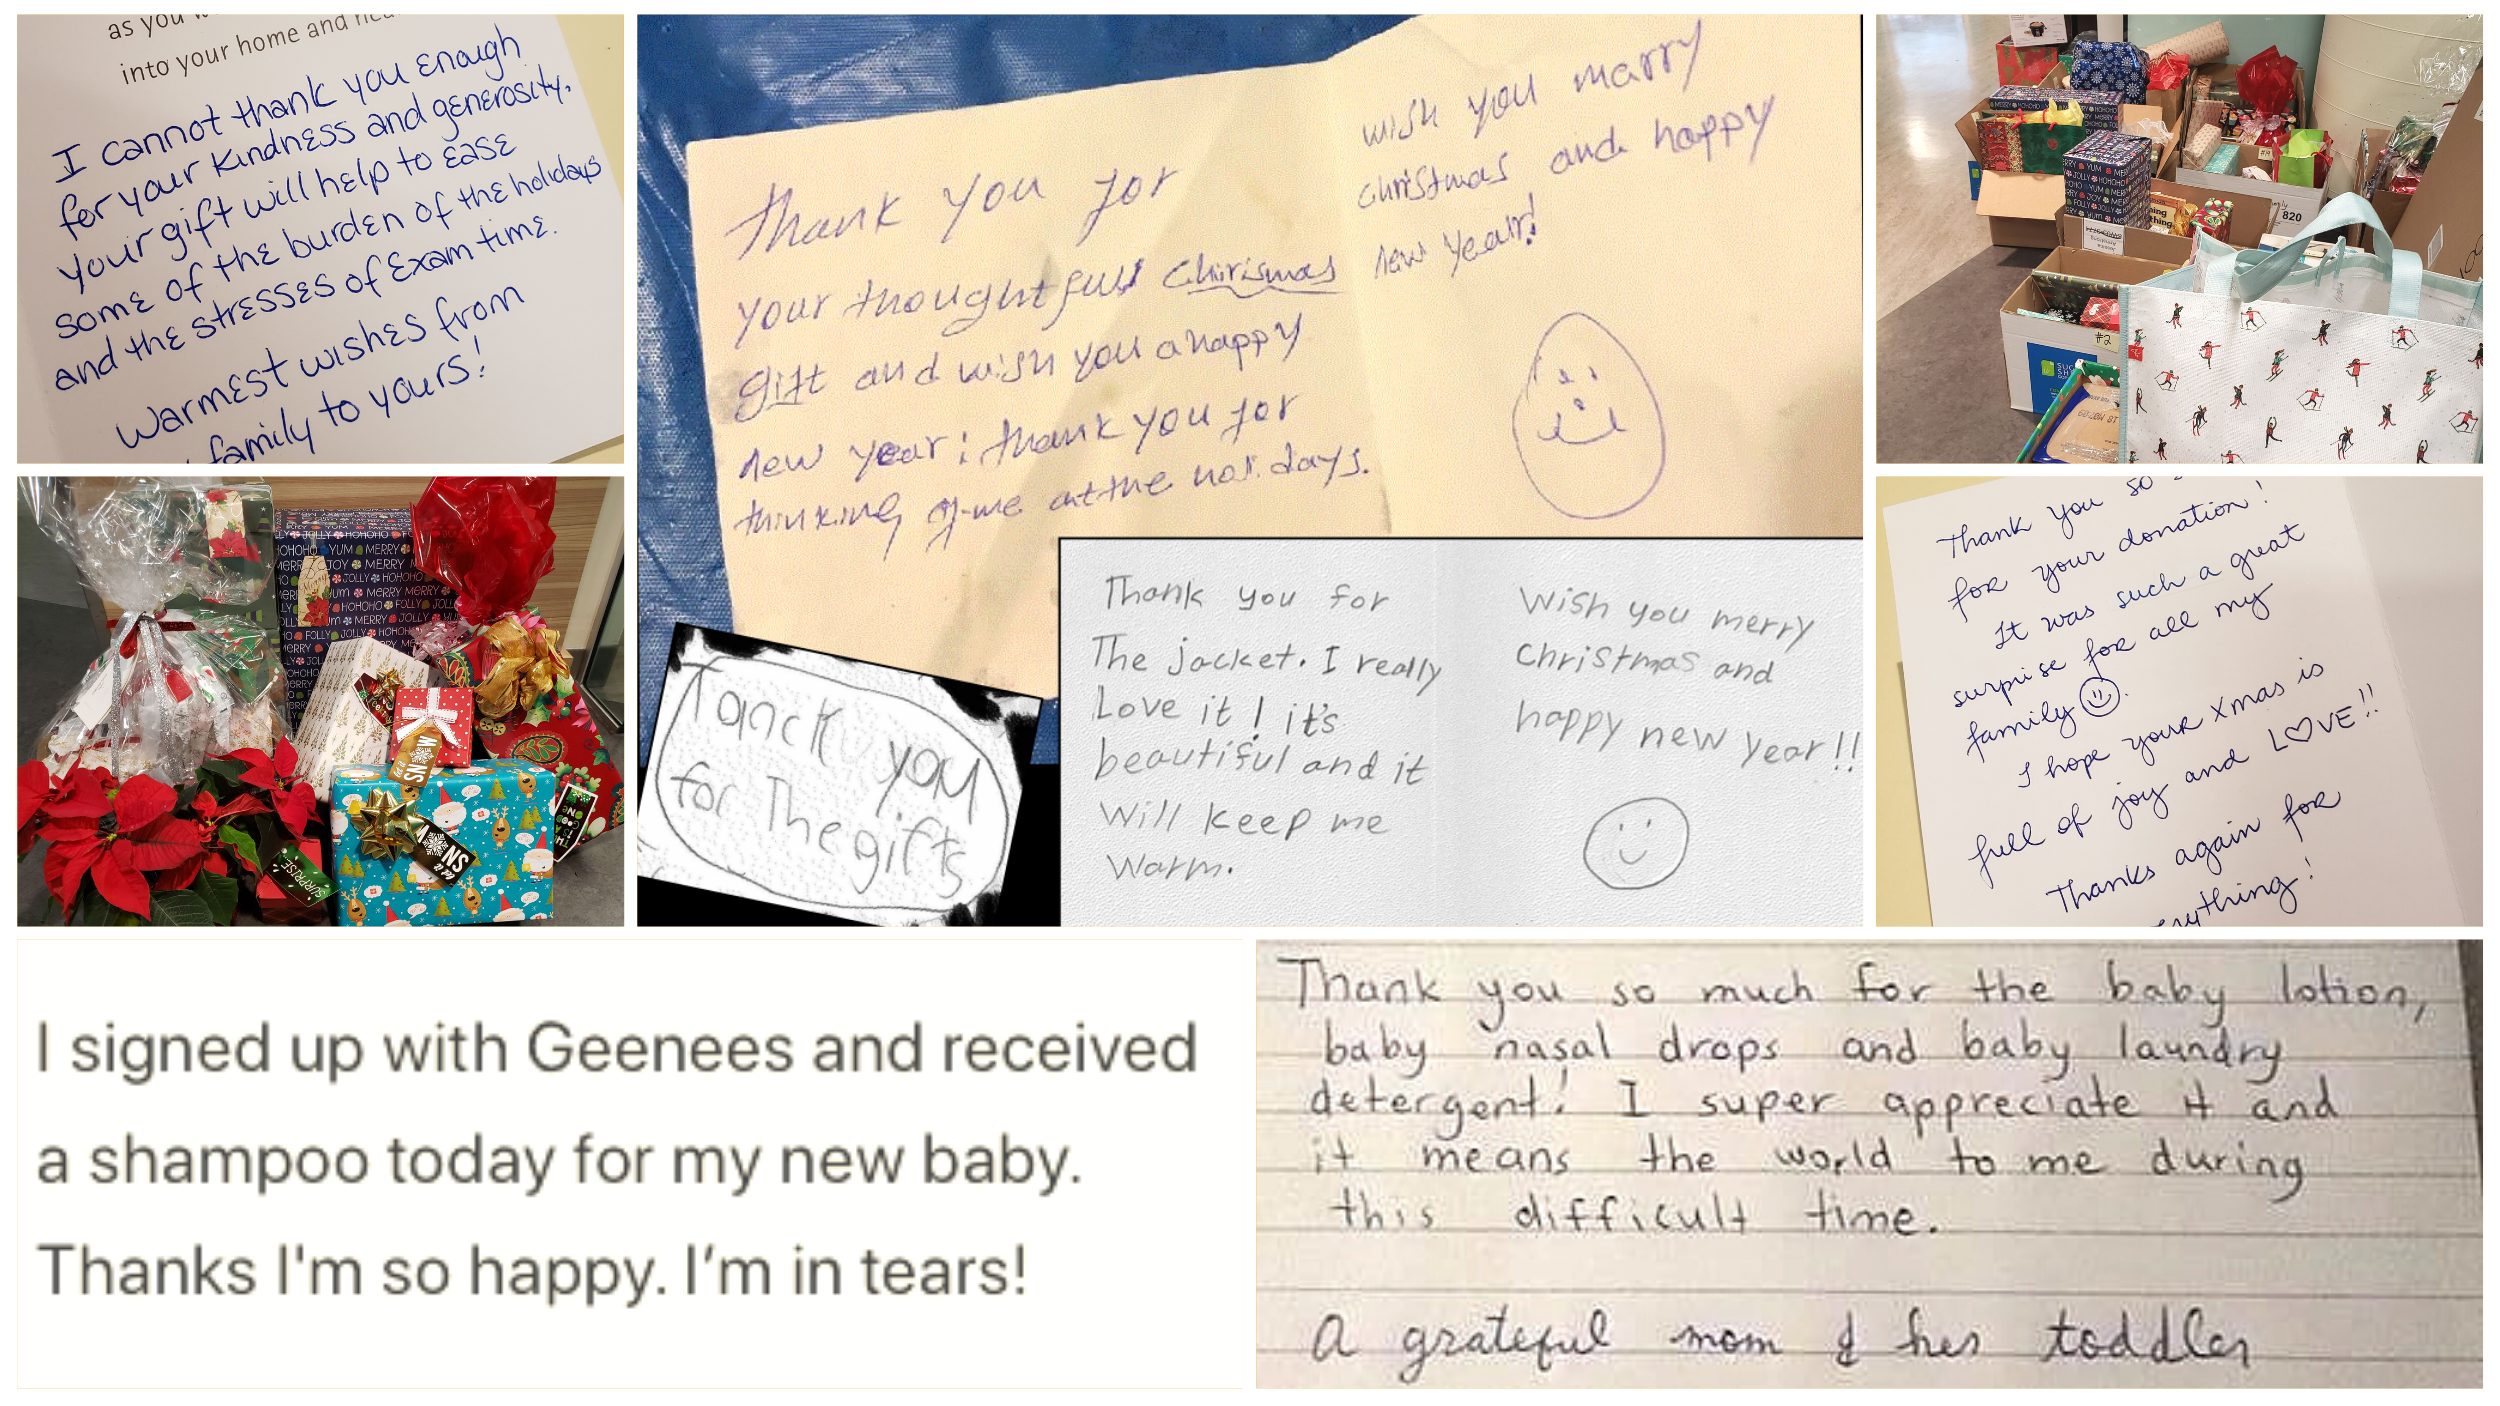 as you
into your home and
I cannot thank you enough
for your kindness and generosity.
your gift will help to ease
some of the burden of the holidays
and the stresses of exam time.
Warmest wishes from
family to yours!
Thank you for
your thoughtfull Chirismas
gift and wish you a happy
new year; thank you for
thinking of me at the holidays.
wish you marry
christmas and happy
new year!
Tanck you
for The gifts
Thank you for
The jacket. I really
Love it! it's
beautiful and it
will keep me
warm.
Wish you merry
Christmas and
happy new year!!
#2
820
Thank you so
for your donation!
It was such a great
surprise for all my
family.
I hope your Xmas is
full of joy and L♡VE!!
Thanks again for
YUM MERRY
JOLLY HOHOHO
SURPRISE
I signed up with Geenees and received
a shampoo today for my new baby.
Thanks I'm so happy. I'm in tears!
Thank you so much for the baby lotion,
baby nasal drops and baby laundry
detergent! I super appreciate it and
it means the world to me during
this difficult time.
A grateful mom & her toddler